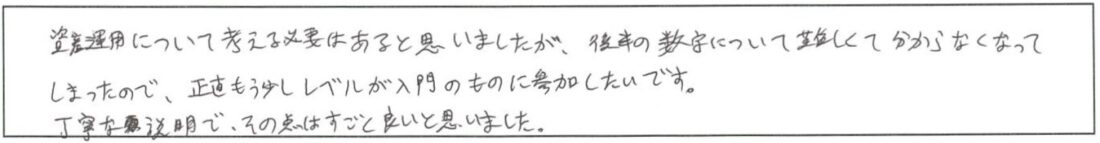 資産運用について考える必要はあると思いましたが、後半の数字について難しくて分からなくなって
しまったので、正直もう少しレベルが入門のものに参加したいです。
丁寧な説明で、その点はすごと良いと思いました。